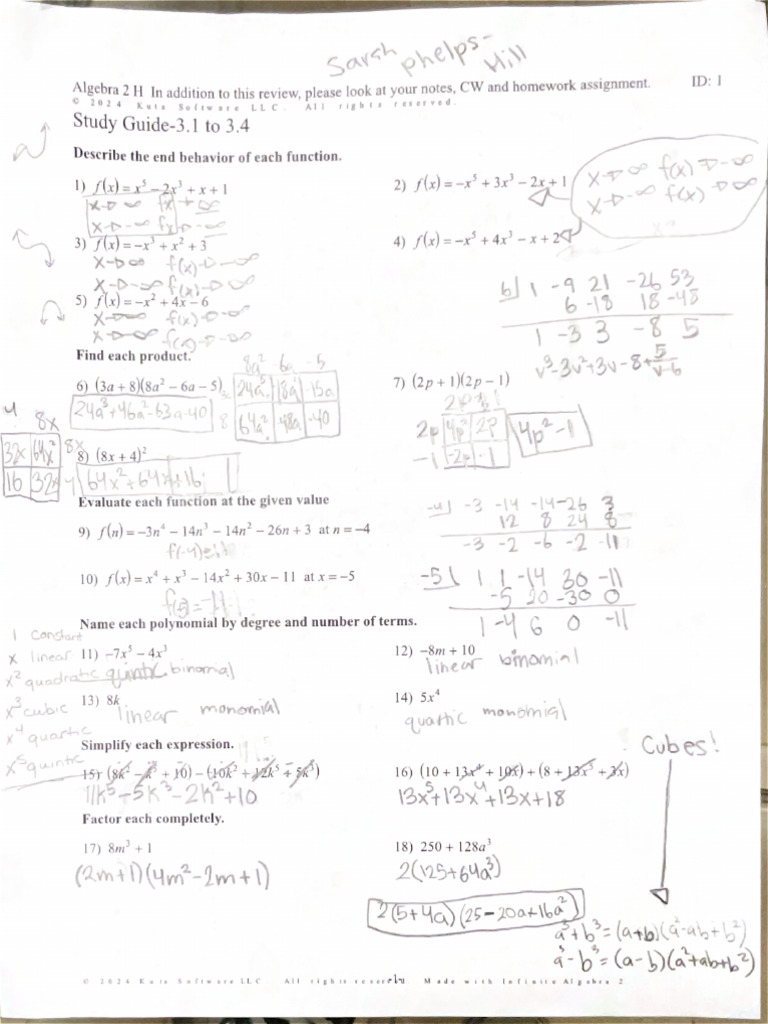 Sarah phelps-Hill
Algebra 2 H In addition to this review, please look at your notes, CW and homework assignment. ID: 1
© 2024 Kuta Software LLC. All rights reserved.
Study Guide-3.1 to 3.4
Describe the end behavior of each function.
1) f(x) = x⁵ − 2x³ + x + 1
x→∞ f(x)→∞
x→-∞ f(x)→-∞
2) f(x) = −x⁵ + 3x³ − 2x + 1
x→∞ f(x)→-∞
x→-∞ f(x)→∞
3) f(x) = −x³ + x² + 3
x→∞ f(x)→-∞
x→-∞ f(x)→∞
4) f(x) = −x⁵ + 4x³ − x + 2
5) f(x) = −x² + 4x − 6
6| 1 -9 21 -26 53
6 -18 18 -48
1 -3 3 -8 5
v³-3v²+3v-8+5/v-6
Find each product.
6) (3a + 8)(8a² − 6a − 5)
8a² 6a -5
24a³ 18a² -15a
8 64a² -48a -40
24a³+46a²-63a-40
7) (2p + 1)(2p − 1)
2p 1
2p 4p² 2p
-1 -2p -1
4p²-1
8) (8x + 4)²
4 8x
32x 64x² 8x
16 32x 4
64x²+64x+16
Evaluate each function at the given value
9) f(n) = −3n⁴ − 14n³ − 14n² − 26n + 3 at n = −4
-4| -3 -14 -14 -26 3
12 8 24 8
-3 -2 -6 -2 11
10) f(x) = x⁴ + x³ − 14x² + 30x − 11 at x = −5
-5| 1 1 -14 30 -11
-5 20 -30 0
1 -4 6 0 -11
Name each polynomial by degree and number of terms.
1 constant
x linear
x² quadratic
x³ cubic
x⁴ quartic
x⁵ quintic
11) −7x⁵ − 4x³
quintic binomial
12) −8m + 10
linear binomial
13) 8k
linear monomial
14) 5x⁴
quartic monomial
Simplify each expression.
15) (8k² − k³ + 10) − (10k² + 12k⁵ + 5k³)
11k⁵-5k³-2k²+10
16) (10 + 13x⁴ + 10x) + (8 + 13x⁵ + 3x)
13x⁵+13x⁴+13x+18
Cubes!
Factor each completely.
17) 8m³ + 1
(2m+1)(4m²-2m+1)
18) 250 + 128a³
2(125+64a³)
2(5+4a)(25-20a+16a²)
a³+b³=(a+b)(a²-ab+b²)
a³-b³=(a-b)(a²+ab+b²)
© 2024 Kuta Software LLC All rights reserved. Made with Infinite Algebra 2